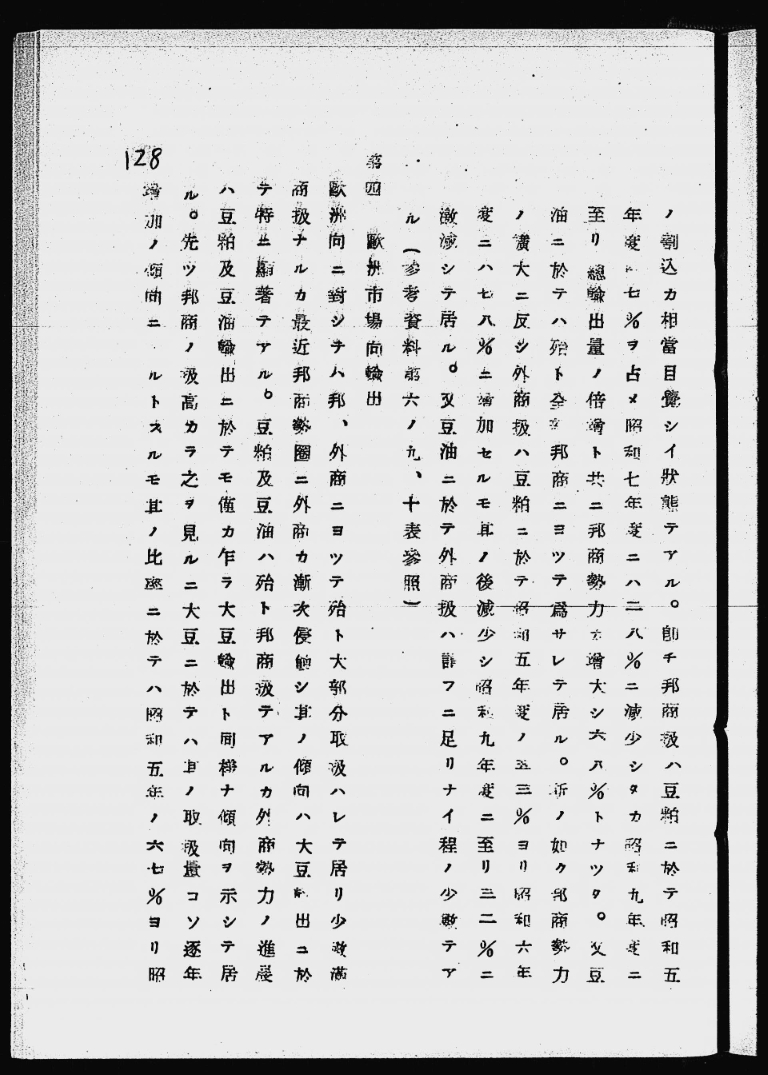 ノ割込カ相當目覺シイ狀態テアル。卽チ邦商扱ハ豆粕ニ於テ昭和五
年度 七%ヲ占メ昭和七年度ニハ二八%ニ減少シタカ昭和九年度ニ
至リ總輸出量ノ倍增ト共ニ邦商勢力 增大シ六八%トナツタ。又豆
油ニ於テハ殆ト全 邦商ニヨツテ爲サレテ居ル。斯ノ如ク邦商勢力
ノ擴大ニ反シ外商扱ハ豆粕ニ於テ昭和五年度ノ 三%ヨリ昭和六年
度ニハ七八%ニ增加セルモ其ノ後減少シ昭和九年度ニ至リ三二%ニ
激減シテ居ル。又豆油ニ於テ外商扱ハ謂フニ足リナイ程ノ少數テア
ル(參考資料第六ノ九、十表參照)
第四 歐洲市場向輸出
歐洲向ニ對シテハ邦、外商ニヨツテ殆ト大部分取扱ハレテ居リ少數滿
商扱ナルカ最近邦商勢圈ニ外商カ漸次侵蝕シ其ノ傾向ハ大豆輸出ニ於
テ特ニ顯著テアル。豆粕及豆油ハ殆ト邦商扱テアルカ外商勢力ノ進展
ハ豆粕及豆油輸出ニ於テモ僅カ乍ラ大豆輸出ト同樣ナ傾向ヲ示シテ居
ル。先ツ邦商ノ扱高カラ之ヲ見ルニ大豆ニ於テハ其ノ取扱量コソ逐年
增加ノ傾向ニ ルトスルモ其ノ比率ニ於テハ昭和五年ノ六七%ヨリ昭
128